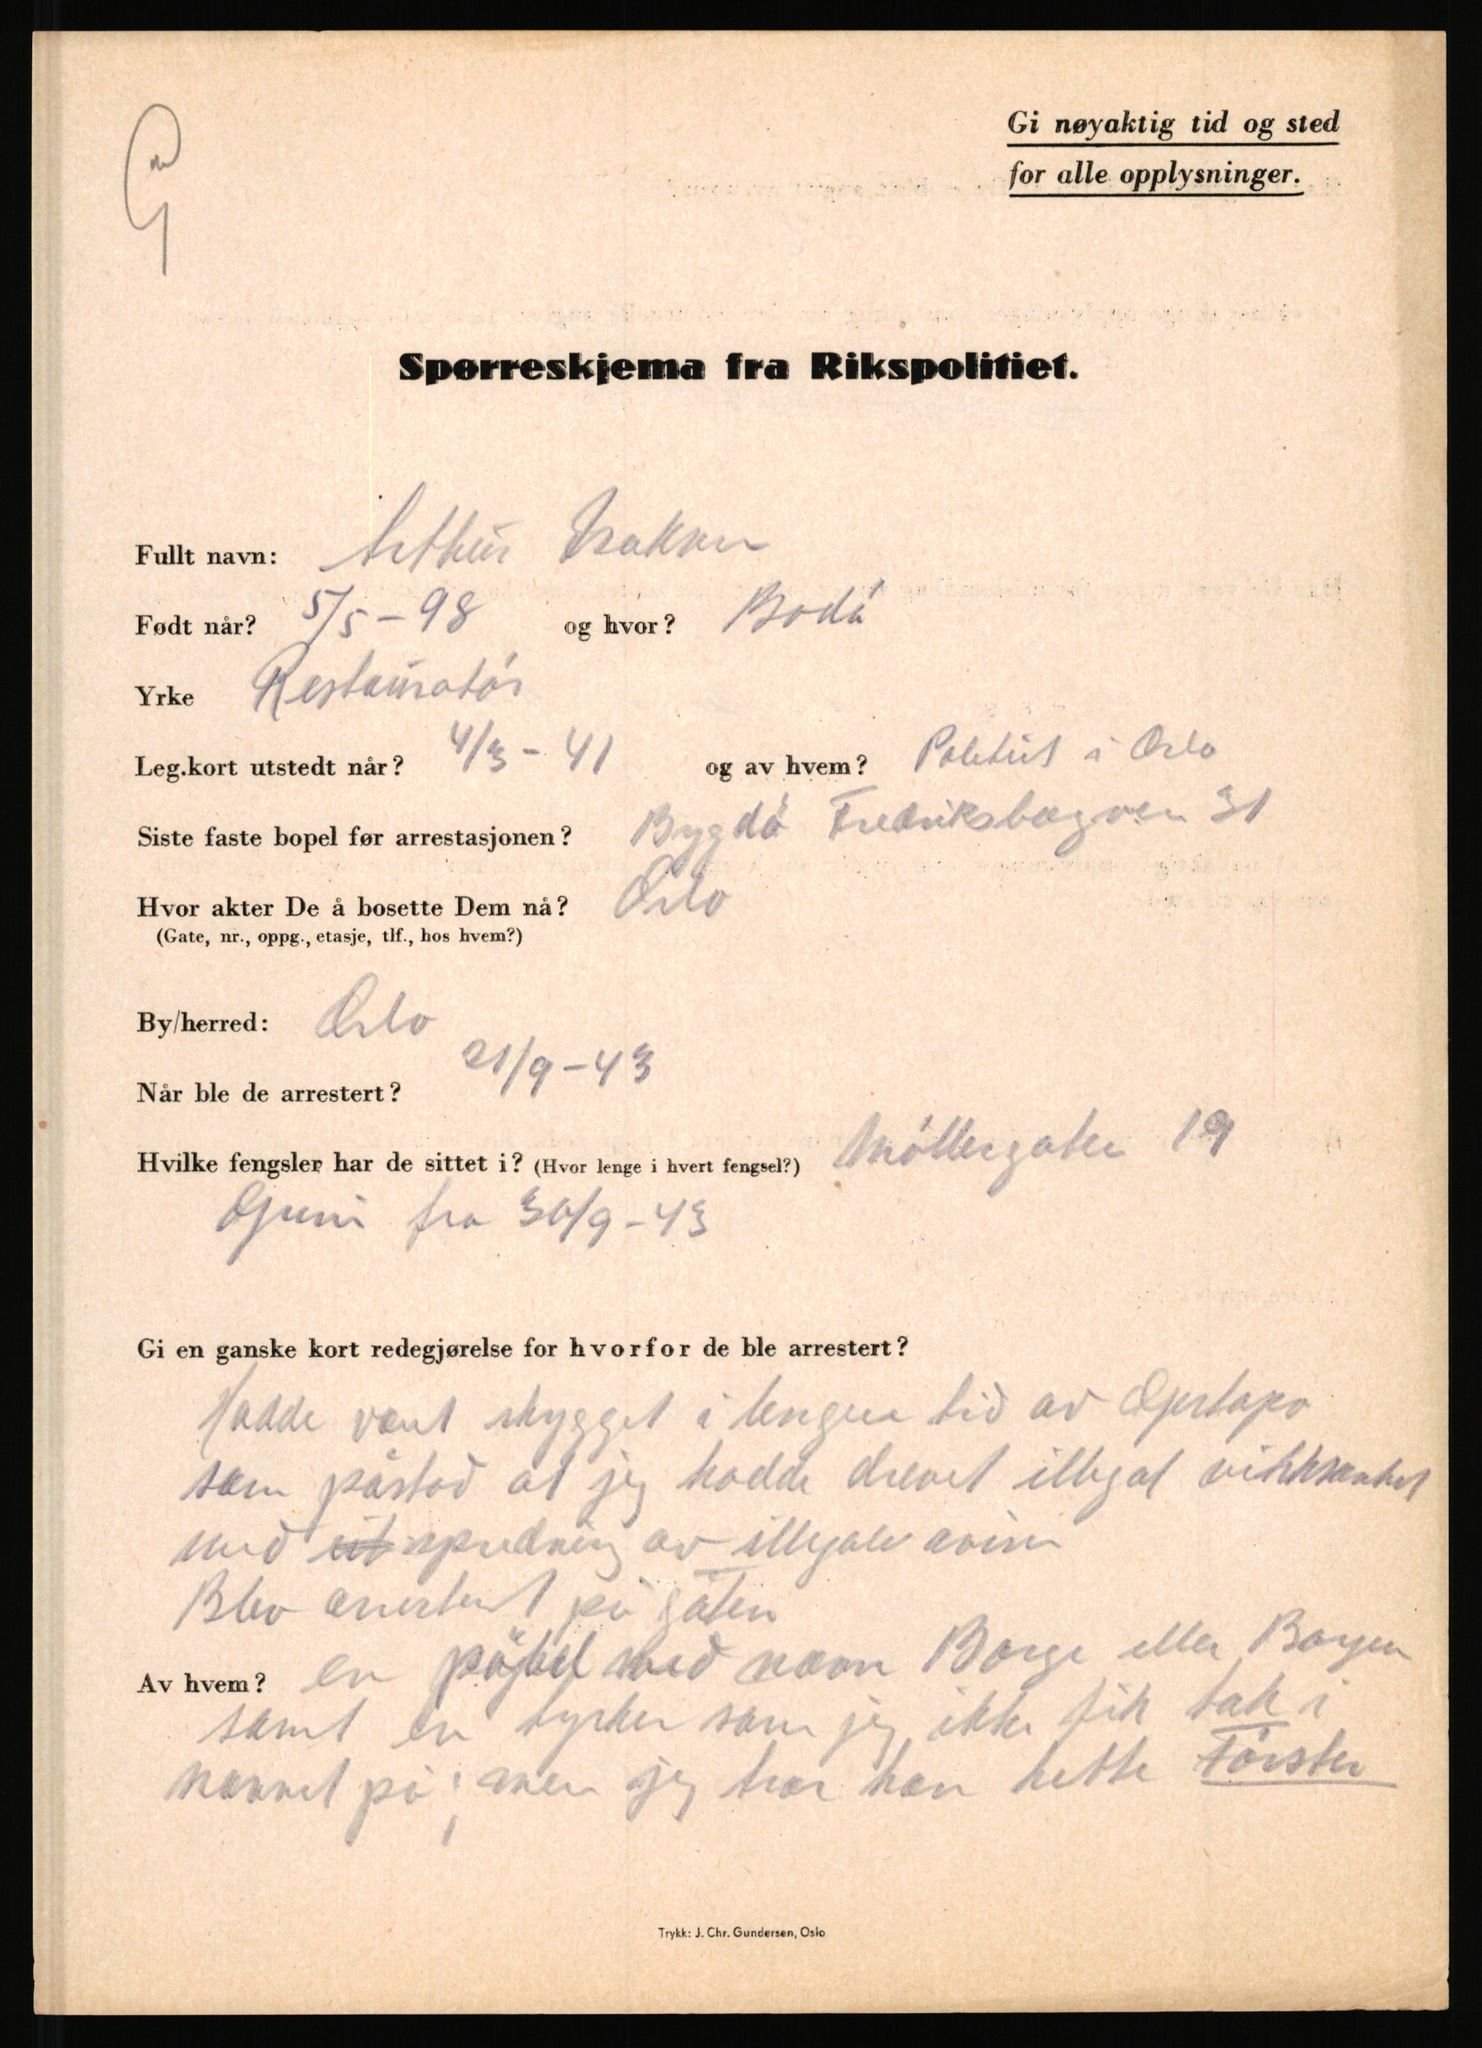 Gi nøyaktig tid og sted
for alle opplysninger.
Spørreskjema fra Rikspolitiet.
Fullt navn: Arthur Isaksen
Født når? 5/5-98 og hvor? Bodö
Yrke Restauratör
Leg.kort utstedt når? 4/3-41 og av hvem? Politiet i Oslo
Siste faste bopel før arrestasjonen? Bygdö Fredriksborgveien 31
Hvor akter De å bosette Dem nå? Oslo
(Gate, nr., oppg., etasje, tlf., hos hvem?)
By/herred: Oslo
Når ble de arrestert? 21/9-43
Hvilke fengsler har de sittet i? (Hvor lenge i hvert fengsel?) Möllergaten 19
Grini fra 30/9-43
Gi en ganske kort redegjørelse for hvorfor de ble arrestert?
Hadde vært skygget i lengere tid av Gestapo
som påstod at jeg hadde drevet illegal virksomhet
med ut spredning av illegale aviser
Blev arrestert på gaten
Av hvem? en med navn Borge eller Borgen
samt en tysker som jeg ikke fik tak i
navnet på; men jeg tror han hette Förster
Trykk: J. Chr. Gundersen, Oslo